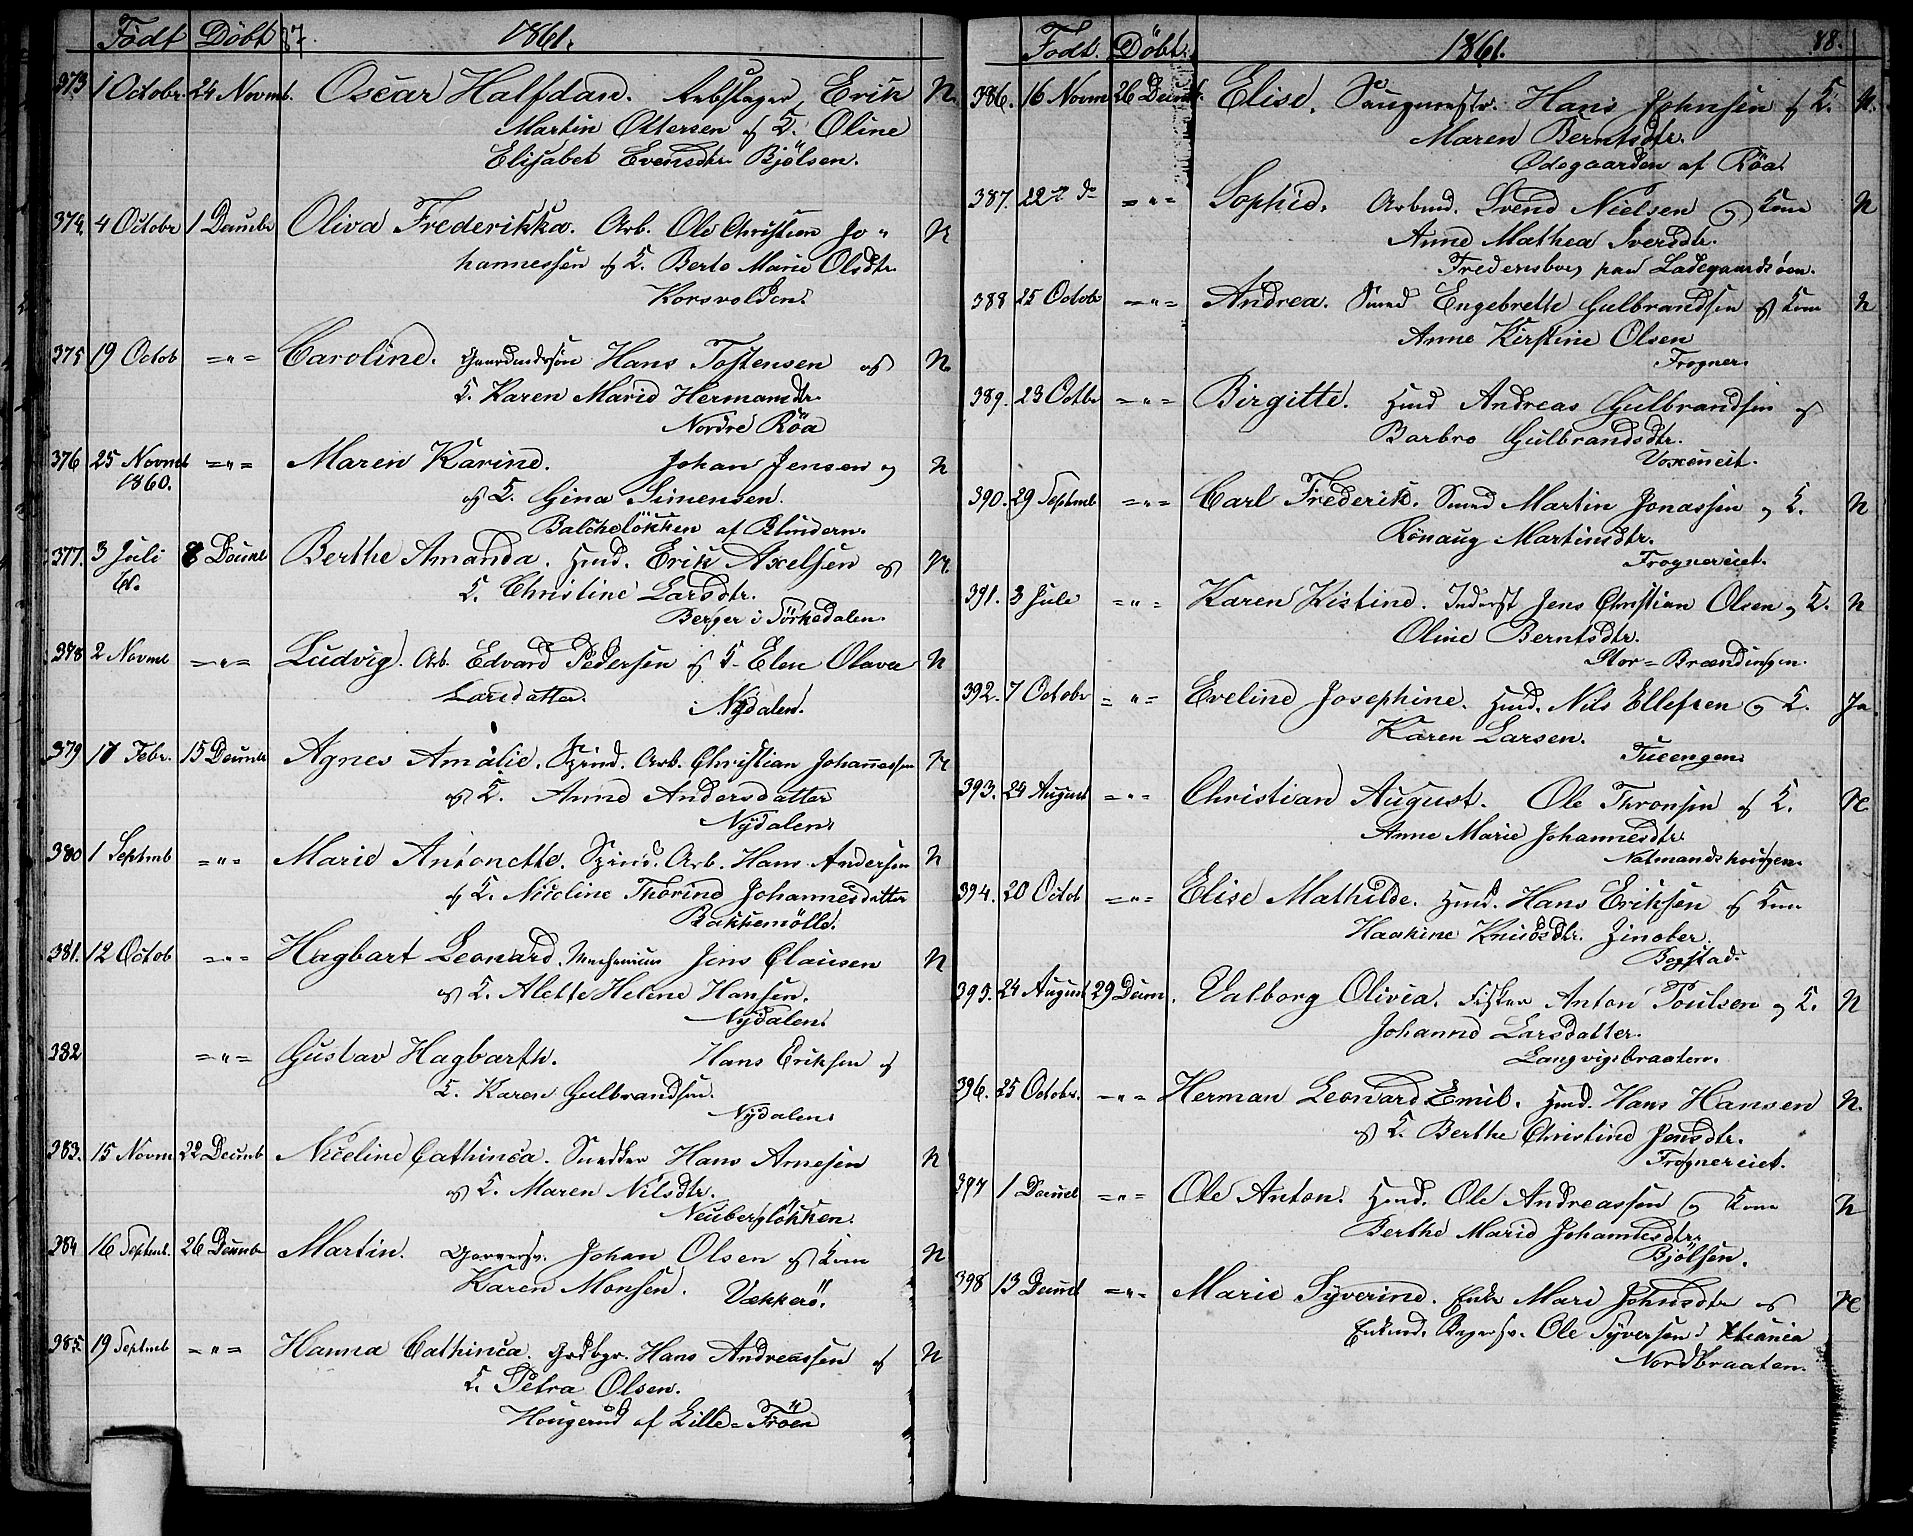 Födt Döbt 87. 1861.
373 1 Octobr. 24 Novmb. Oscar Halfdan. Rebslager Erik N.
Martin Ottersen og K. Oline
Elisabet Evensdtr. Bjölsen.
374. 4 Octobr 1 Decmbr Oliva Frederikka. Arb. Ole Christian Jo- N
hannessen og K. Berte Marie Olsdtr.
Korsvolden.
375 19 Octob =„= Caroline. Gaardmdssön Hans Tostensen og N.
K. Karen Marie Hermansdtr.
Nordre Röa
376 25 Novmb =„= Maren Karine. Johan Jensen og N
1860.
og K. Gina Simensen.
Balchelökken af Blindern.
377. 3 Juli 8 Decmb Berthe Amanda. Hmd. Erik Axelsen og N.
61.
K. Christine Larsdtr.
Berger i Sörkedalen.
378 2 Novmb =„= Ludvig. Arb. Edvard Pedersen og K. Elen Olava N
Larsdatter. Nydalen.
379 17 Febr. 15 Decmb Agnes Amalie. Spind. Arb. Christian Johannessen N
og K. Anne Andersdatter
Nydalen.
380 1 Septmb =„= Marie Antonette. Spind. Arb. Hans Andersen N
og K. Nicoline Thorine Johannesdatter
Bakkemölle.
381. 12 Octob =„= Hagbart Leonard. Mechanicus Jens Clausen N
og K. Alette Helene Hansen.
Nydalen.
382 =„= Gustav Hagbarth. Hans Eriksen og
K. Karen Gulbrandsen.
Nydalen.
383. 15 Novm 22 Decmb Niceline Cathinca. Snedker Hans Arnesen N
og K. Maren Nilsdtr.
Neuberglökken.
384 16 Septmb. 26 Decmb Martin. Garversv. Johan Olsen og Kone N
Karen Monsen. Vækkerö.
385. 19 Septmb =„= Hanna Cathinca. Grdbgr. Hans Andreassen og N
K. Petra Olsen.
Hougerud af Lille-Fröen
Födt. Döbt. 1861. 88.
386. 16 Novm 26 Decmb. Elise. Saugmestr. Hans Johnsen og K. N.
Maren Berntsdtr.
Ödegaarden af Röa.
387. 22 d =„= Sophie. Arbmd. Svend Nielsen og Kone N
Anne Mathea Iversdtr.
Fredensborg paa Ladegaardsöen.
388 25 Octobr =„= Andrea. Smed Engebreth Gulbrandsen og Kone N
Anne Kirstine Olsen
Frogner.
389. 23 Octbr =„= Birgitte. Hmd Andreas Gulbrandsen og
Barbro Gulbrandsdtr.
Voxeneit.
390. 29 Septmb =„= Carl Frederik. Smed Martin Jonassen og K. N
Rönaug Martinsdtr.
Frognereiet.
391. 3 Juli =„= Karen Kistine. Inderst Jens Christian Olsen og K. N
Oline Berntsdtr.
Stor-Brændingen.
392. 7 Octobr =„= Eveline Josephine. Hmd. Nils Ellefsen og K. Ja.
Karen Larsen.
Tueengen.
393. 24 August =„= Christian August. Ole Thronsen og K. N.
Anne Marie Johannesdtr.
Natmandshougen.
394. 20 Octob =„= Elise Mathilde. Hmd. Hans Eriksen og Kone
Haakine Knudsdtr. Zinober.
Bogstad.
395. 24 August 29 Decm. Valborg Olivia. Fisker Anton Poulsen og K. N
Johanne Larsdatter.
Langvigsbraaten.
396. 25 Octobr. =„= Herman Leonard Emil. Hmd. Hans Hansen N.
og K. Berthe Christine Jensdtr.
Frognereiet.
397 1 Decmb =„= Ole Anton. Hmd. Ole Andreassen og Kone N
Berthe Marie Johannesdtr.
Bjölsen.
398 13 Decmb =„= Marie Syverine. Enke Mari Johnsdtr og N
Enkmd. Bagersv. Ole Syversen Xtiania
Nordbraaten.